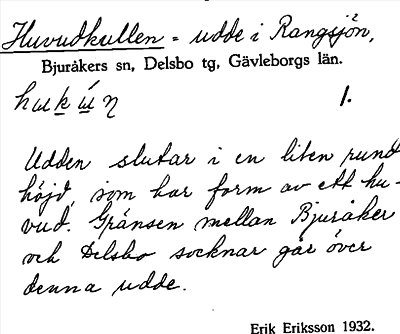 Huvudkullen = udde i Rangsjön,
Bjuråkers sn, Delsbo tg, Gävleborgs län.
hukún 1.
Udden slutar i en liten rund
höjd, som har form av ett hu-
vud. Gränsen mellan Bjuråker
och Delsbo socknar går över
denna udde.
Erik Eriksson 1932.